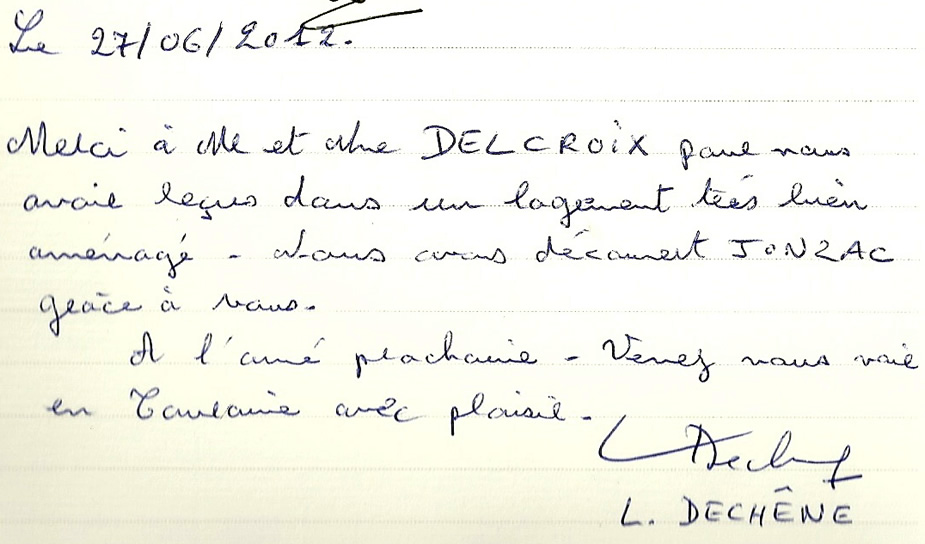 Le 27/06/2012.
Merci à Mr et Mme DELCROIX pour nous
avoir reçus dans un logement très bien
aménagé - Nous avons découvert JONZAC
grâce à vous.
A l'anné prochaine - Venez nous voir
en Touraine avec plaisir -
L. DECHÊNE